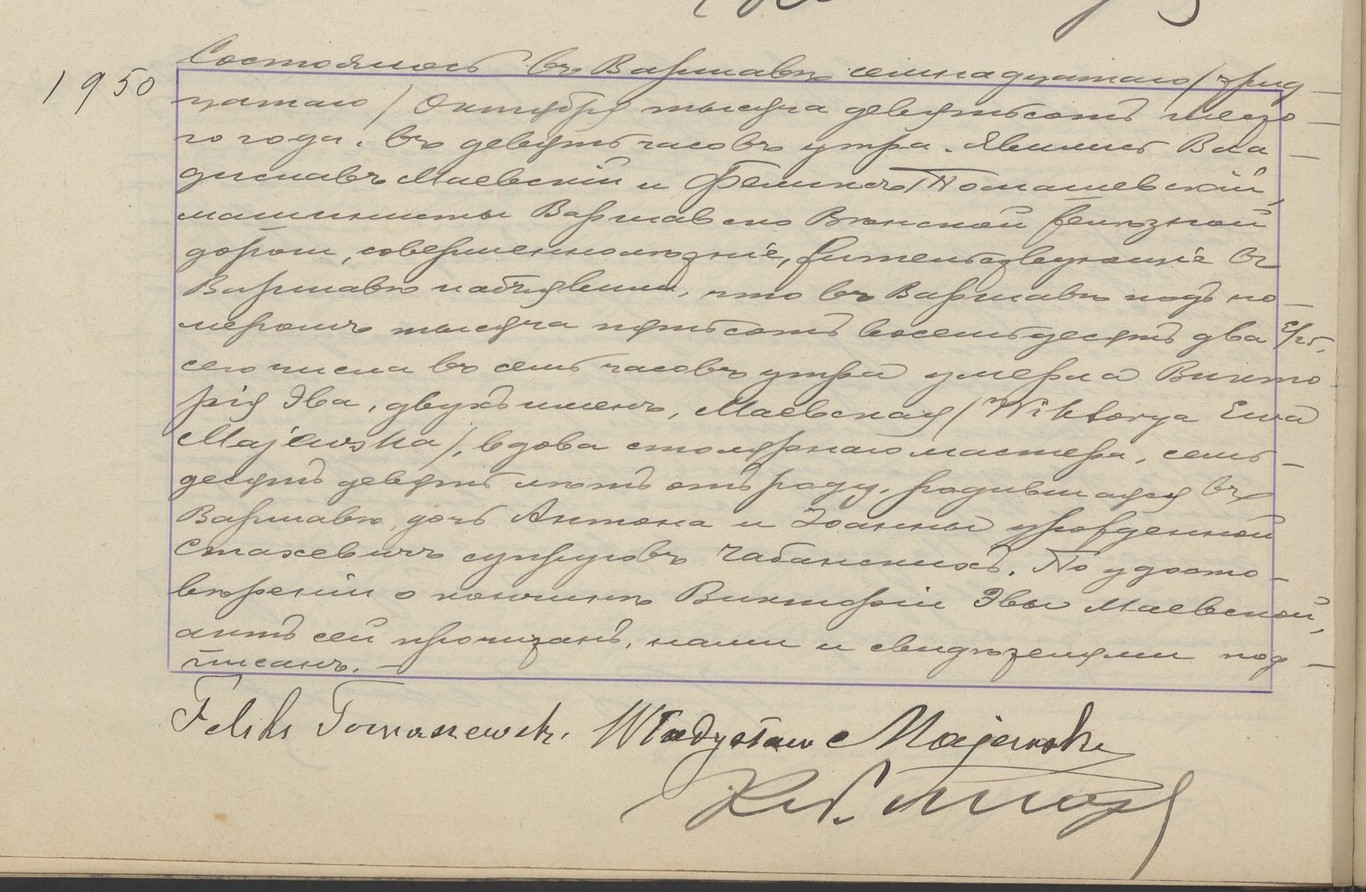 1950
Состоялось въ Варшавѣ семнадцатаго / трид
цатаго / Октября тысяча девятьсотъ
го года. въ девять часовъ утра. Явились Вла
диславъ Маевскій и Феликсъ Томашевскій,
машинисты Варшавско Вѣнской желѣзной
дороги, совершеннолѣтніе, жительствующіе въ
Варшавѣ и объявили, что въ Варшавѣ подъ но
меромъ тысяча пятьсотъ восемьдесятъ два
сего числа въ семь часовъ утра умерла Викто
рія Эва, двухъ именъ, Маевская / Wiktorya Ewa
Majewska /, вдова столярнаго мастера, семь
десятъ девять лѣтъ отъ роду, родившаяся въ
Варшавѣ, дочь Антона и Іоанны урожденной
Стахевичъ супруговъ Чабанскихъ. По удосто
вѣреніи о кончинѣ Викторіи Эвы Маевской,
актъ сей прочитанъ, нами и свидѣтелями под
писанъ. —
Feliks Tomaszewski. Władysław Majewski